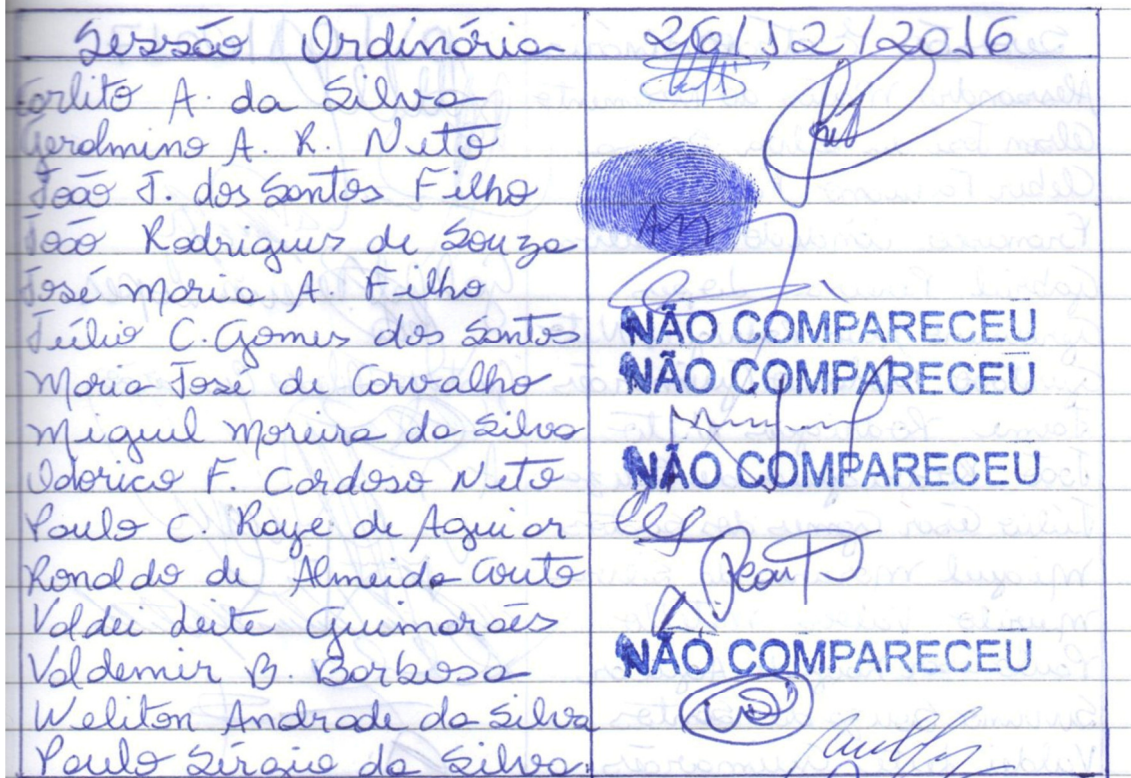 Sessão Ordinária 26/12/2016
Carlito A. da Silva
Geralmino A. R. Neto
João J. dos Santos Filho
João Rodrigues de Souza
José Maria A. Filho
Júlio C. Gomes dos Santos NÃO COMPARECEU
Maria José de Carvalho NÃO COMPARECEU
Miguel Moreira da Silva
Odorico F. Cardoso Neto NÃO COMPARECEU
Paulo C. Raye de Aguiar
Ronaldo de Almeida Couto
Valdei Leite Guimarães
Valdemir B. Barbosa NÃO COMPARECEU
Weliton Andrade da Silva
Paulo Sérgio da Silva